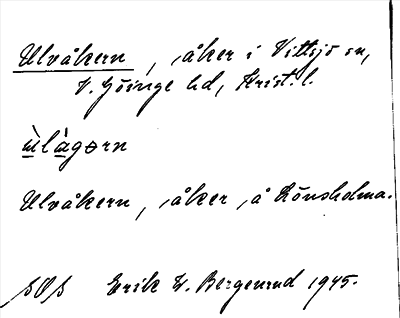 Ulvåkern, åker i Vittsjö sn,
V. Göinge hd, Krist. l.
ùlàgorn
Ulvåkern, åker, å Rönsholma.
SOS Erik W. Bergenrud 1945.